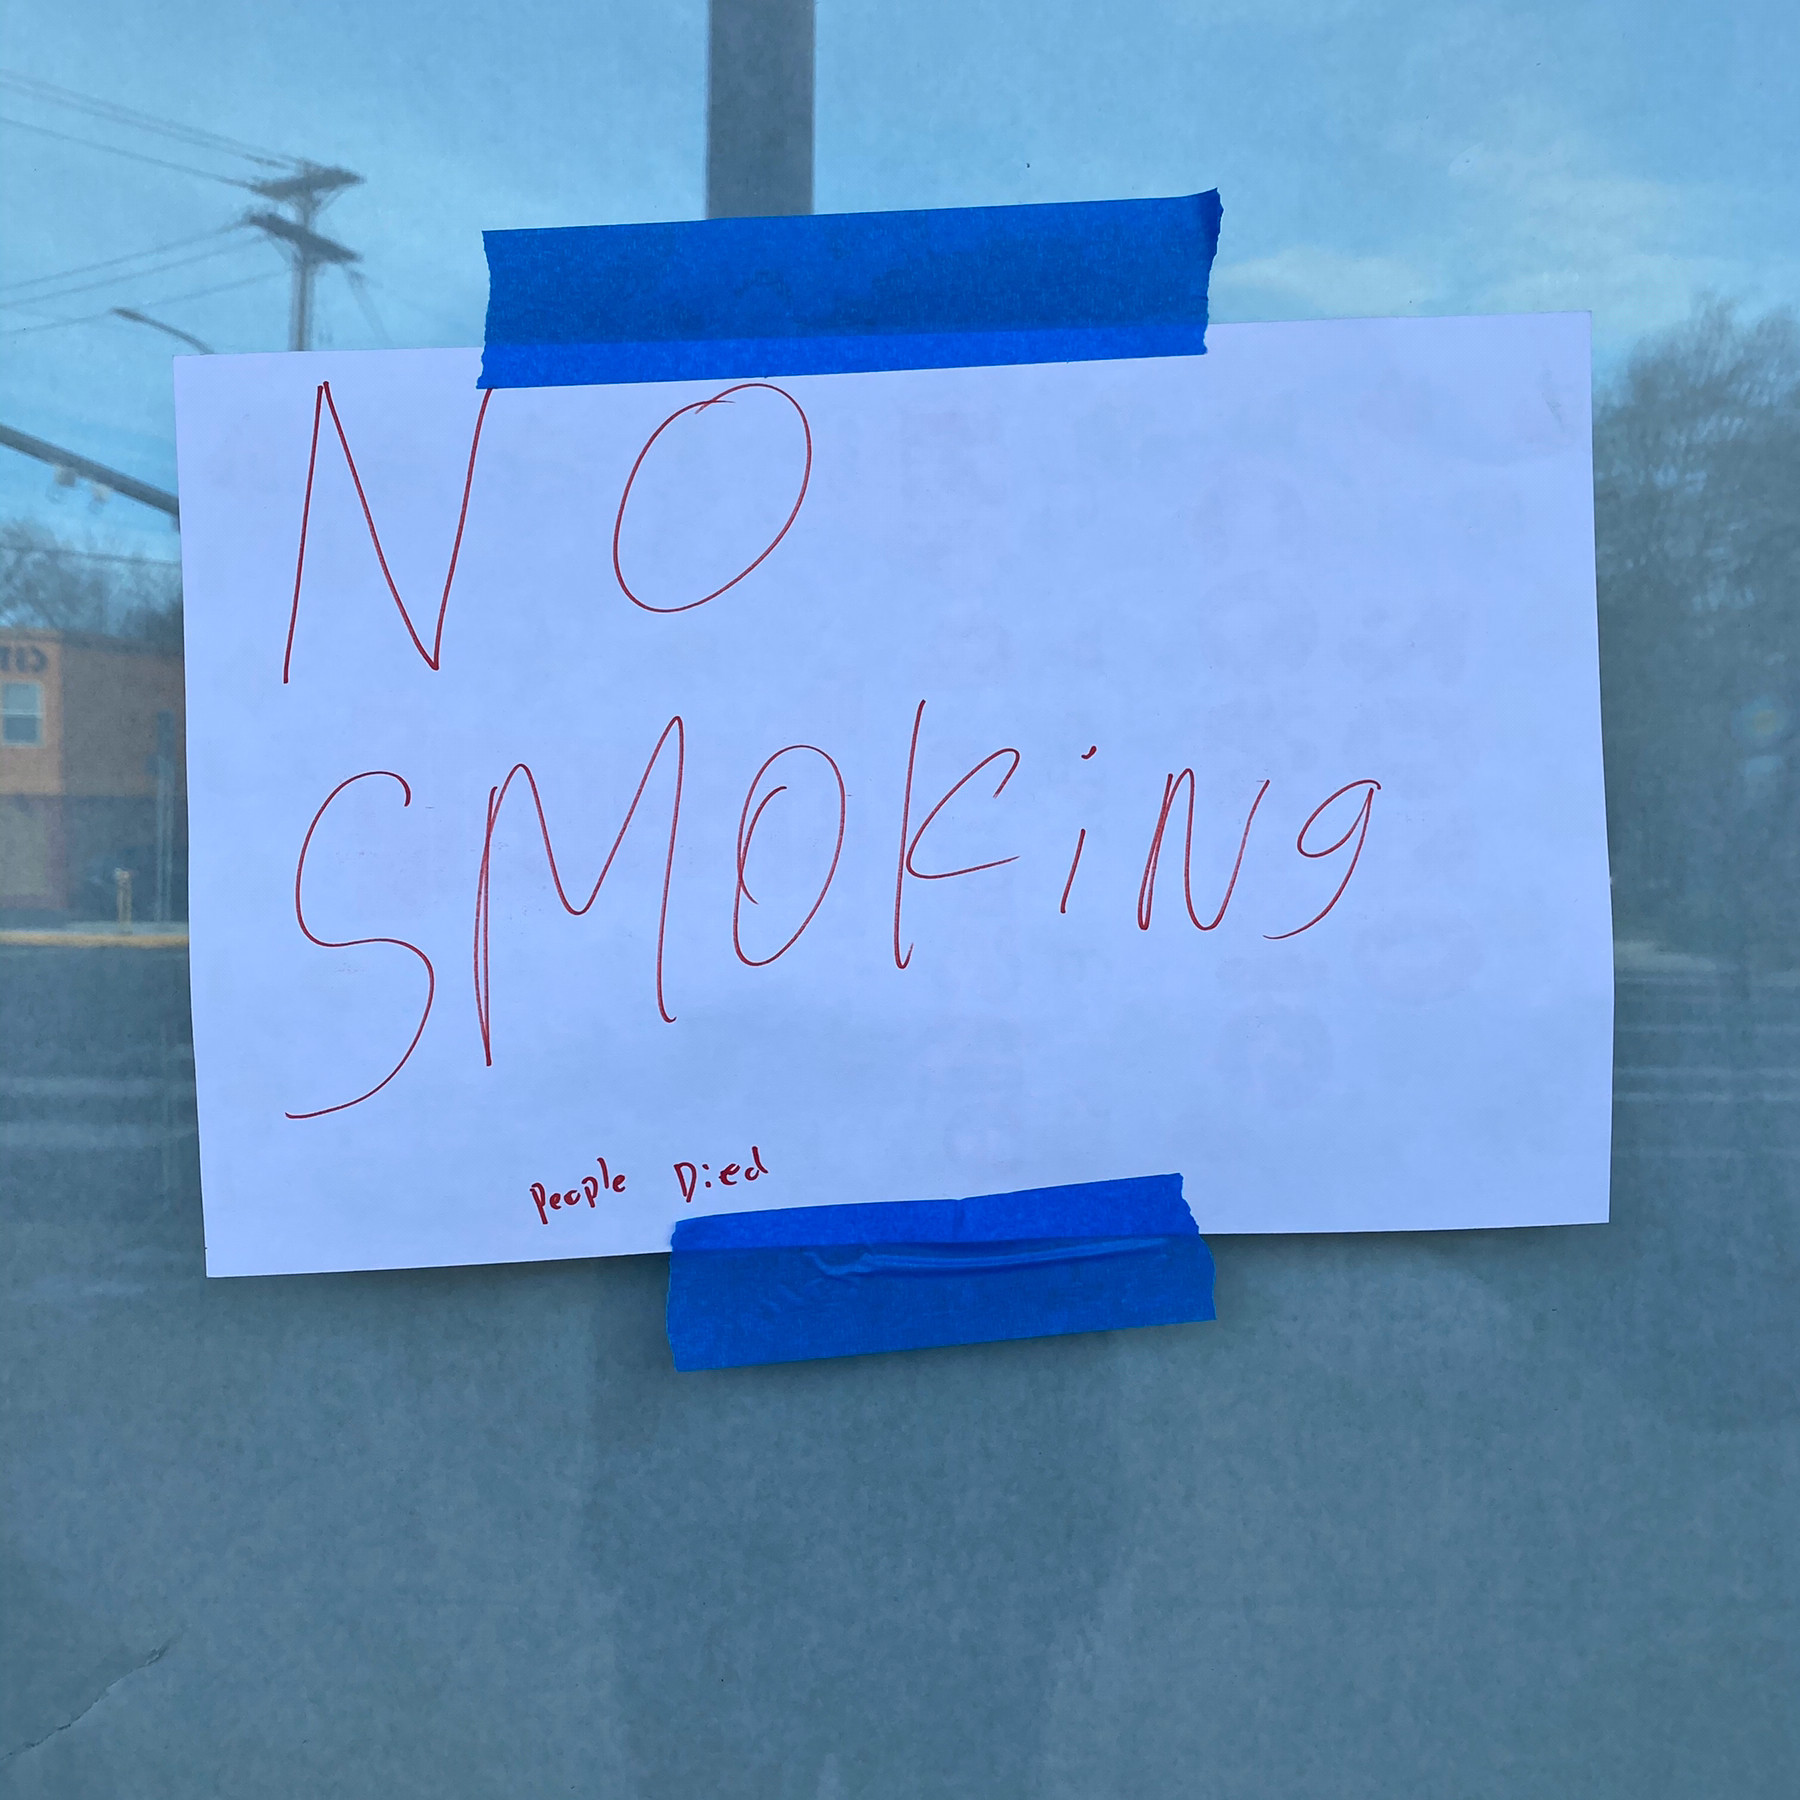 NO
SMOKiNg
People Died